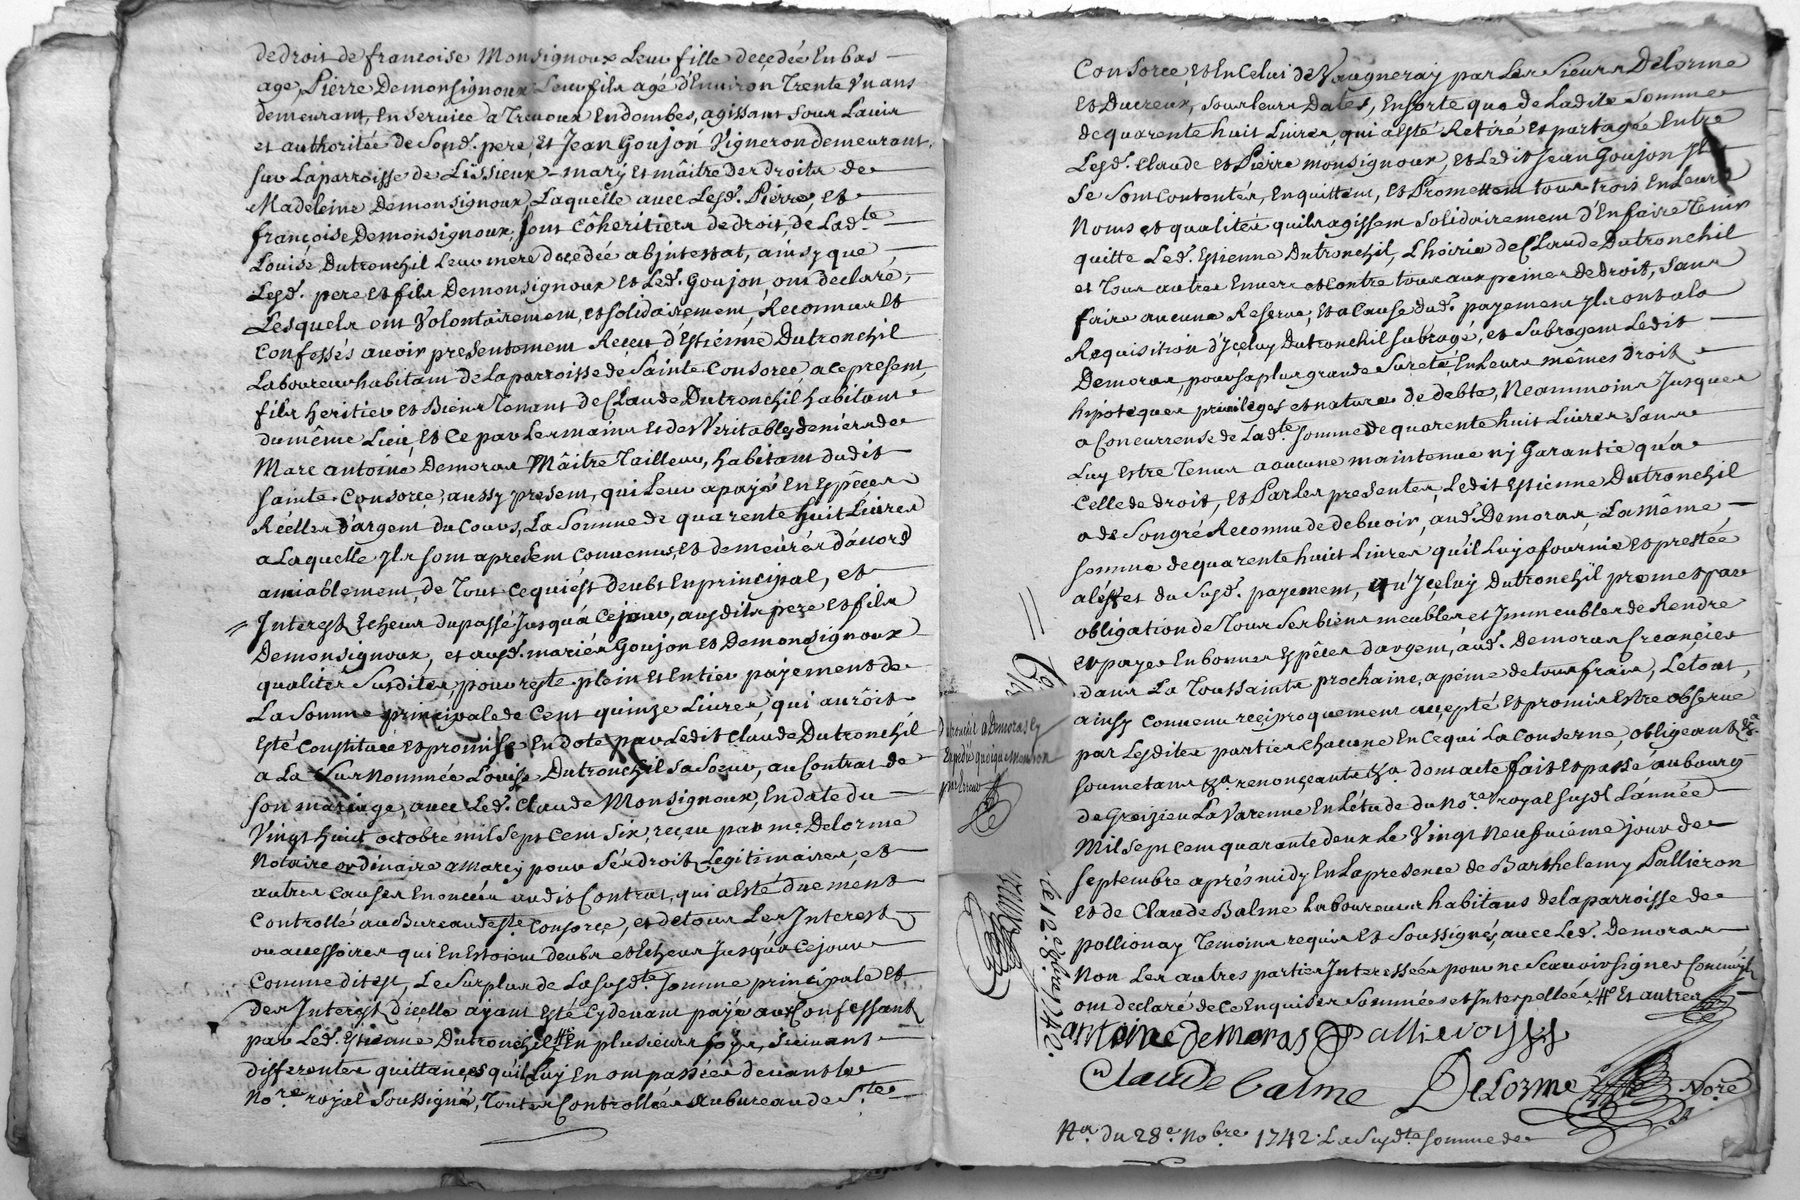 de droit de francoise Monsignoux Leur fille deçedée En bas
age, Pierre Demonsignoux Leur fils agé d'Environ Trente Vn ans
demeurant, En service a Trevoux En dombes, agissant sous Lavis
et authoritée de Sond. pere, Et Jean Goujon Vigneron demeurant
sur La parroisse de Lissieux - mary Et mâitre des droits de
Madeleine Demonsignoux, Laquelle avec Lesd. Pierre, et
françoise Demonsignoux, sont Côheritiers de droit, de Lad.te
Louise Dutronchil Leur mere deçedée abjntestat, ainsy que
Lesd. pere Et fils Demonsignoux Et Led. Goujon, ont declaré,
Lesquels ont Volontairement, et solidairement, Reconnus Et
Confessés avoir presentement Reçeu d'Estienne Dutronchil
Laboureur habitant de La parroisse de Sainte Consorce a ce present,
fils heritier et Biens Tenant de Claude Dutronchil habitant
du même Lieu, Et Ce par Les mains Et des Veritables deniers de
Marc antoine Demoras Mâitre Tailleur, habitant dudit
Sainte Consorce, aussy present, qui Leur a payé En Espêces
Réelles d'argent du Cours, La Somme de quarente huit Livres
a Laquelle Jls sont a present Convenus, Et demeurés d'acord
amiablement, de Tout ce qui est deubt En principal, et
Interest Echeus du passé Jusqu'á Ce jour, ausdits pere et fils
Demonsignoux, et ausd. mariés Goujon Et Demonsignoux
qualités Susdites, pour reste plein Et Entier payement de
La Somme principale de Cent quinze Livres, qui auroit
Esté Constituée Et promise En dote par Ledit Claude Dutronchil
a La Surnommée Louise Dutronchil Sa Soeur, au Contrat de
son mariage, avec Led. Claude Monsignoux, En date du
Vingt huit octobre mil sept Cent Six, reçeu par me. Delorme
Notaire ordinaire a Marcy pour Ses droits Legitimaires, et
autres Causes Enoncées au dit Contrat, qui a Esté duement
Controllé au Bureau de ste. Consorçe, et de tous Les Interest
ou accessoires qui En Estoient deubs et Echeus Jusqu'a Ce jour
Comme dit est, Le Surplus de La susd.te Somme principale Et
Des Interest d'icelle ayant Esté Cy devant payé aux Confessants
par Led. Estienne Dutronchil En plusieurs foys, suivant
differentes quittançes qu'ils Luy En ont passées devant Le
No.re royal Soussigné, Toutes Controllées au bureau de S.te
Dutronchil a Demoras Ey
Expedié quoique mention
Consorce, Et En Celui de Vaugneray par Les Sieurs Delorme
Et Ducreux, sous leurs Dates, Ensorte que de Ladite Somme
de quarente huit Livres, qui a Esté Retiré Et partagée Entre
Lesd. Claude Et Pierre monsignoux, et Ledit Jean Goujon Jls
Se Sont Contentés, En quittent, Et Promettent tous trois En Leurs
Noms et qualités quils agissent Solidairement d'En faire Tenir
quitte Led. Estienne Dutronchil, L'hoirie de Claude Dutronchil
et Tous autres Envers et Contre tous aux peines de droit, Sans
faire aucune Reserve, Et a Cause dud. payement Jls ont a la
Requisition d'Jçeluy Dutronchil subrogé, et Subrogent Ledit
Demoras, pour sa plus grande Sureté, En Leurs mêmes droit
hipoteques privileges et nature de debte, Neammoins Jusques
a Concurrense de Lad.te Somme de quarente huit Livres Sans
Luy Estre Tenus a aucune maintenue nj Garantie qu'a
Celle de droit, Et Par Les presentes, Ledit Estienne Dutronchil
a de Son gré Reconnu de debvoir, aud. Demoras, La même
somme de quarente huit Livres qu'il Luy a fournie Et prestée
a L'effet du Susd. payement, qu'Jçeluy Dutronchil promet par
obligation de Tous Ses biens meubles et Jmmeubles de Rendre
et payer En bonnes Espêces d'argent, aud. Demoras Creançier
dans La Toussaints prochaine, a peine de tous frais, Le tout
ainsy Convenu reçiproquement accepté Et promis Estre observé
par Lesdites parties Chacune En Ce qui La Conserne, obligeant &a
soumetans &a. renonçeants &a dont acte fait Et passé au bourg
de Greizieu La Varenne En L'étude du No.re royal susd. L'année
Mil Sept Cent quarante deux Le Vingt Neufvième jour de
septembre aprés midy En La presence de Barthelemy Pallieron
Et de Claude Balme Laboureurs habitans de La parroisse de
pollionay Temoins requis Et Soussignés, avec Led. Demoras
Non Les autres parties Interessées pour ne Scavoir signer Comme ils
ont declaré de Ce Enquis et Sommées et Interpellées. Et autres
antoine Demoras Pallieron
Claude balme Delorme No.re
Na. du 28e. No.bre 1742. La Susd.te Somme de